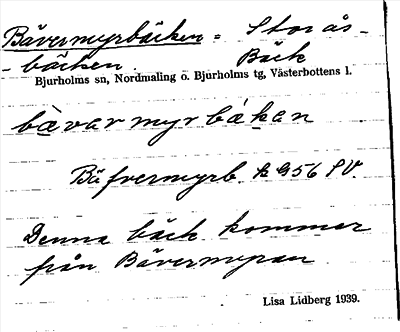 Bävermyrbäcken = Storås-
-bäcken. Bäck
Bjurholms sn, Nordmaling o. Bjurholms tg, Västerbottens l.
bä̀varmyrbákan
Bäfvermyrb. k 956 SV.
Denna bäck kommer
från Bävermyran
Lisa Lidberg 1939.